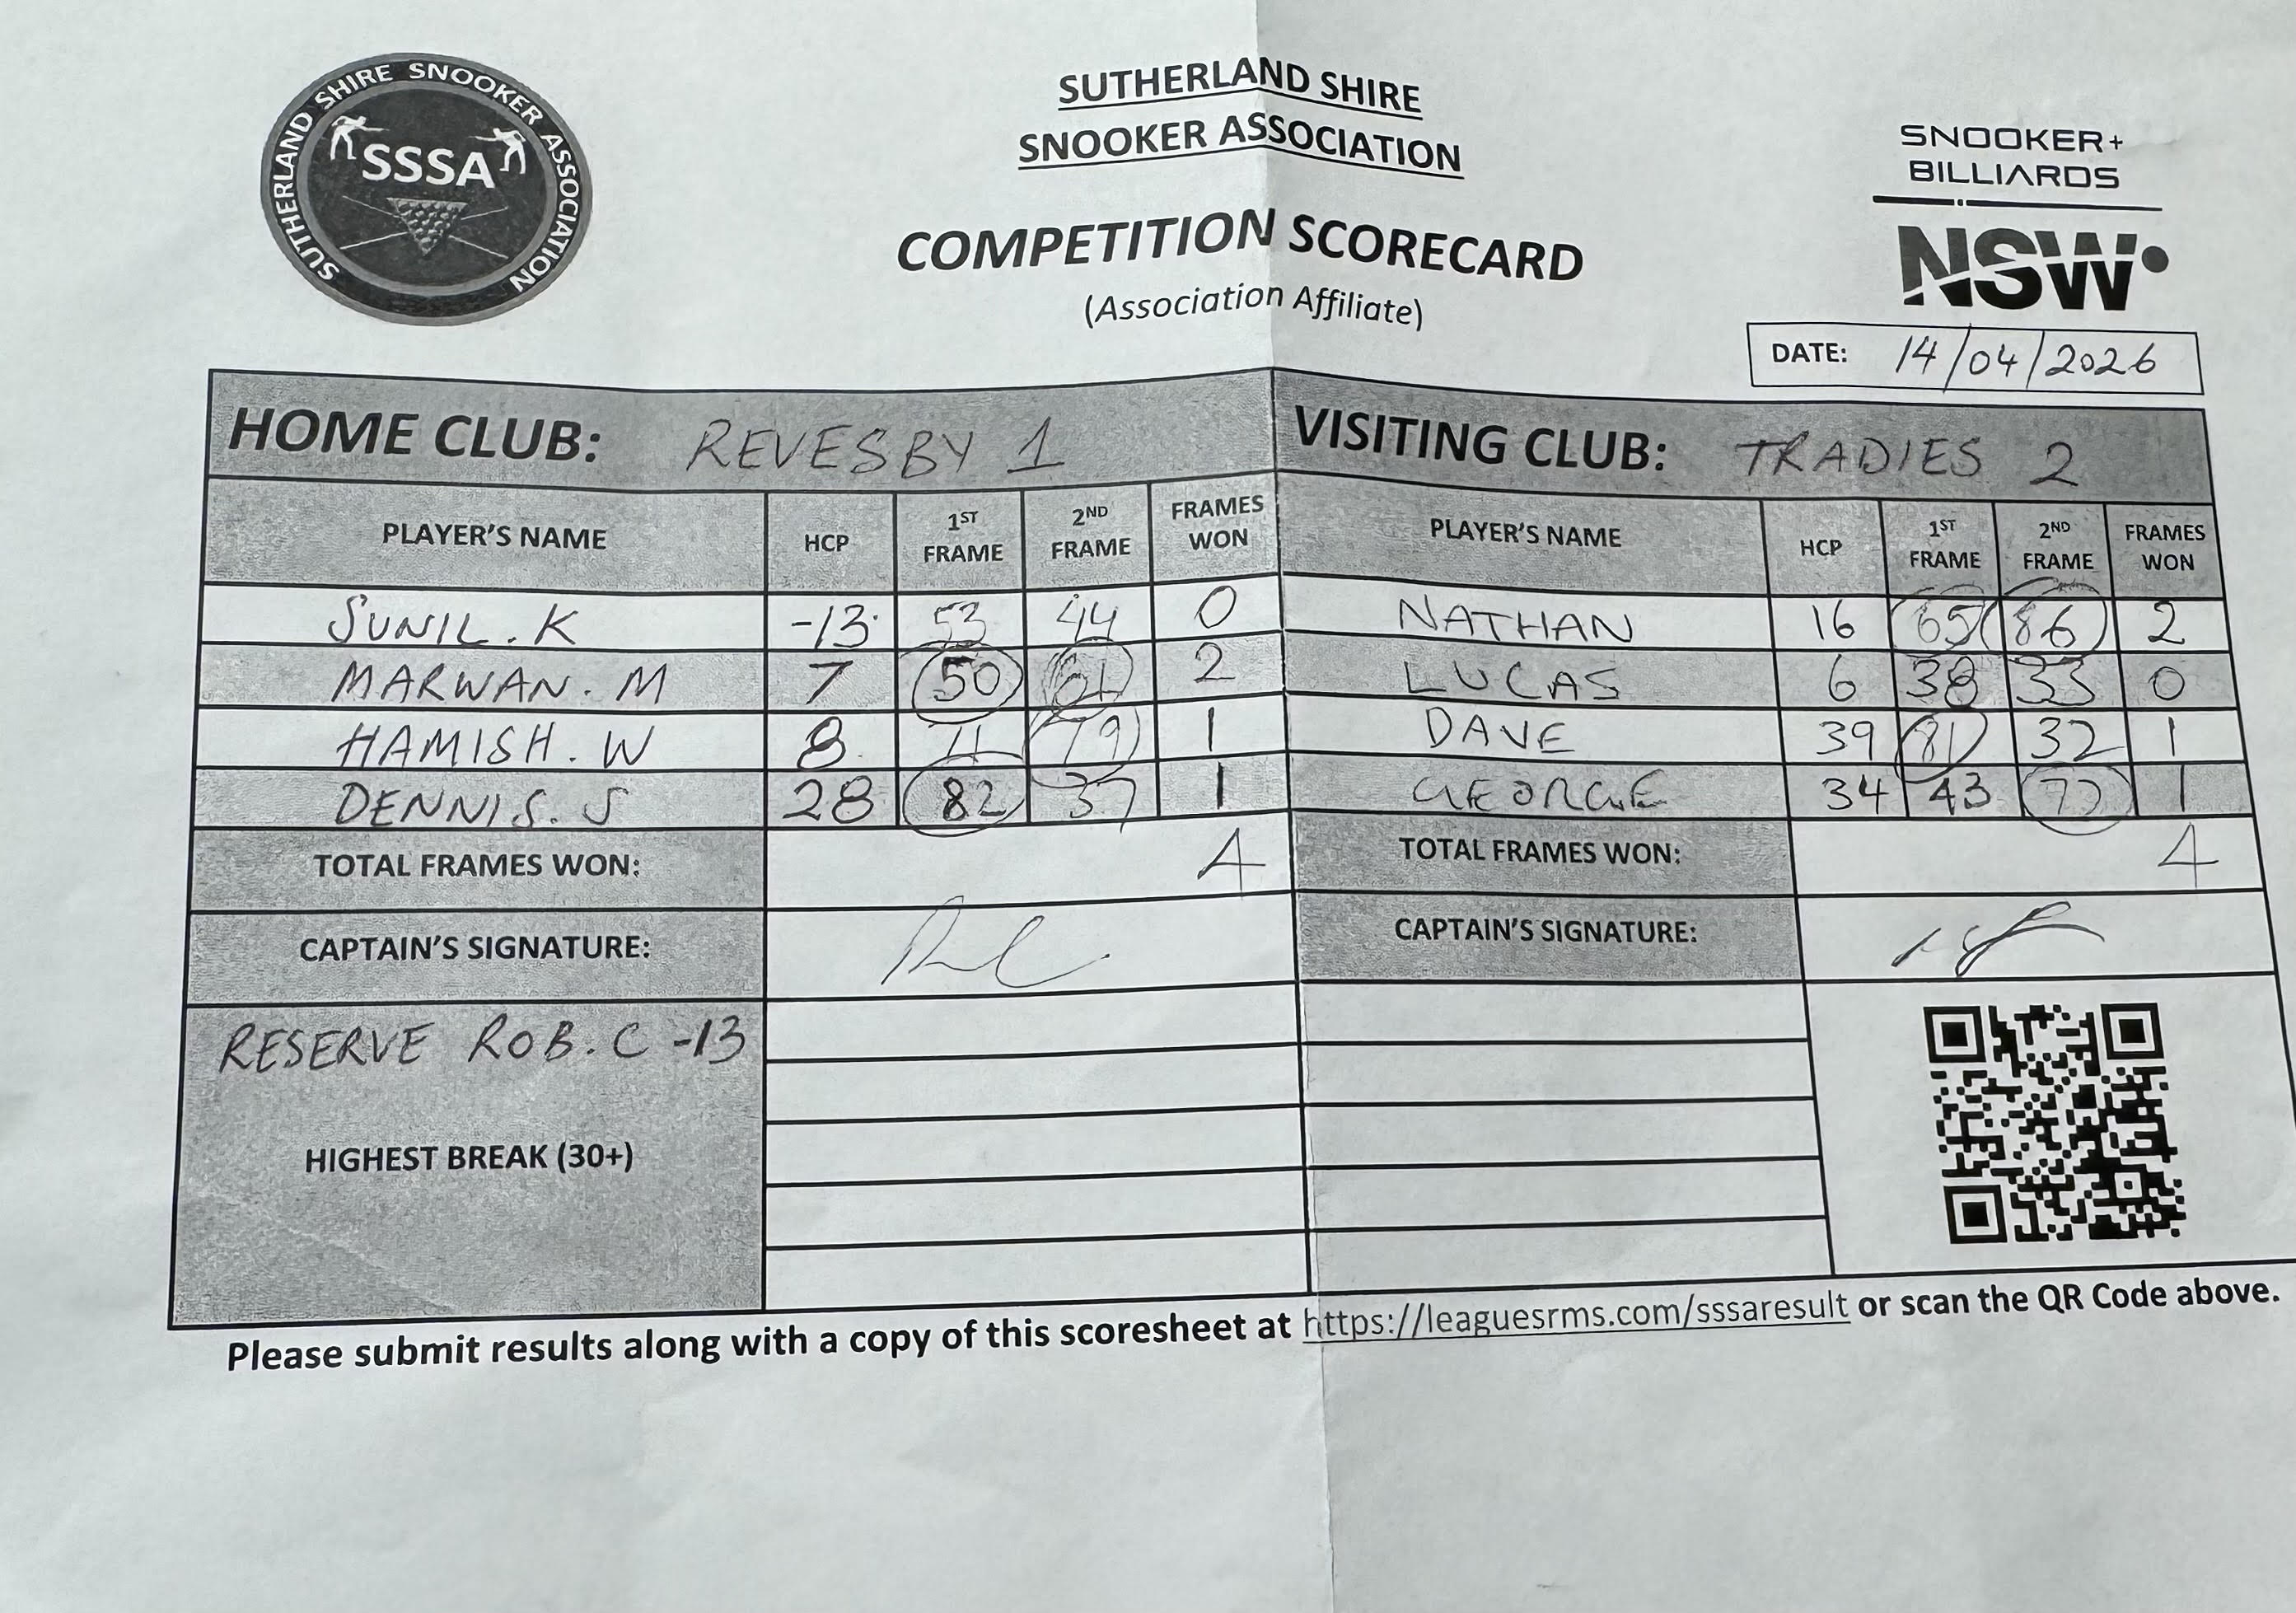 SUTHERLAND SHIRE SNOOKER ASSOCIATION
SSSA
SUTHERLAND SHIRE
SNOOKER ASSOCIATION
COMPETITION SCORECARD
(Association Affiliate)
SNOOKER+
BILLIARDS
NSW
DATE: 14/04/2026
HOME CLUB: REVESBY 1 VISITING CLUB: TRADIES 2
PLAYER'S NAME HCP 1ST FRAME 2ND FRAME FRAMES WON PLAYER'S NAME HCP 1ST FRAME 2ND FRAME FRAMES WON
SUNIL.K -13 53 44 0 NATHAN 16 65 86 2
MARWAN.M 7 50 61 2 LUCAS 6 38 33 0
HAMISH.W 8 79 1 DAVE 39 81 32 1
DENNIS.S 28 82 37 1 GEORGE 34 43 1
TOTAL FRAMES WON: 4 TOTAL FRAMES WON: 4
CAPTAIN'S SIGNATURE: CAPTAIN'S SIGNATURE:
RESERVE ROB.C -13
HIGHEST BREAK (30+)
Please submit results along with a copy of this scoresheet at https://leaguesrms.com/sssaresult or scan the QR Code above.